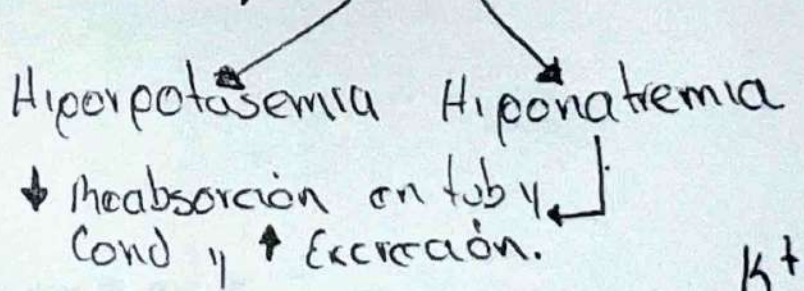 Hiperpotasemia Hiponatremia
↓ Reabsorción en tub y
Cond y ↑ Excreción.
K+